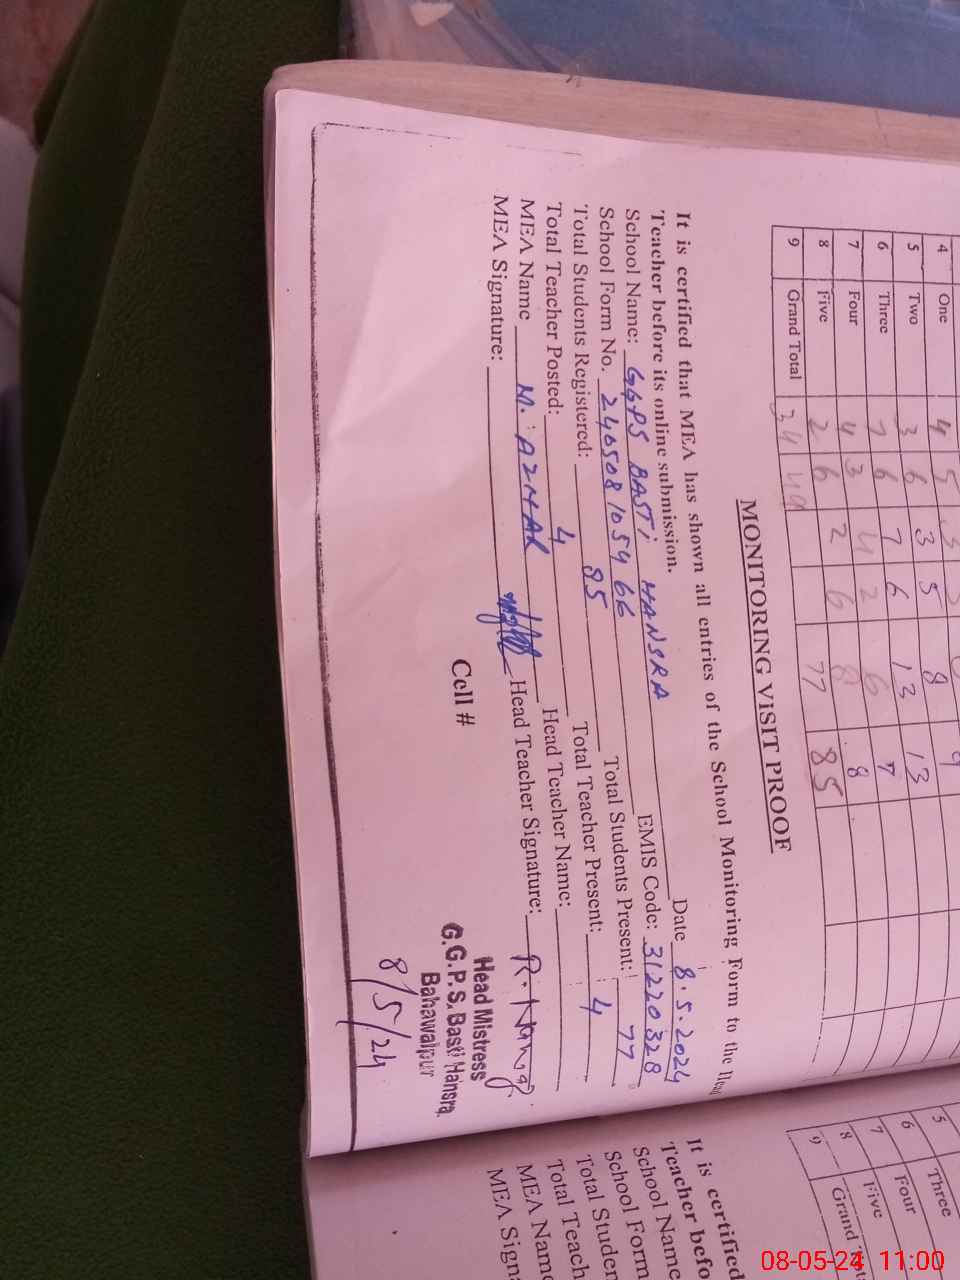 4 One 4 5 3 5 8 9
5 Two 3 6 3 5 13 13
6 Three 7 6 7 6 13 7
7 Four 4 3 4 2 6 8
8 Five 2 6 2 6 8
9 Grand Total 34 49 77 85
MONITORING VISIT PROOF
It is certified that MEA has shown all entries of the School Monitoring Form to the Head
Teacher before its online submission. Date 8.5.2024
School Name: GGPS BASTI HANSRA EMIS Code: 31220328
School Form No. 240508105466 Total Students Present: 77
Total Students Registered: 85 Total Teacher Present: 4
Total Teacher Posted: 4 Head Teacher Name:
MEA Name M. AZHAR Head Teacher Signature:
MEA Signature:
Cell #
Head Mistress
G.G.P.S. Basti Hansra
Bahawalpur
8/5/24
5 Three
6 Four
7 Five
8 Grand
9
It is certified
Teacher befo
School Name
School Form
Total Studen
Total Teach
MEA Name
MEA Signa
08-05-24 11:00